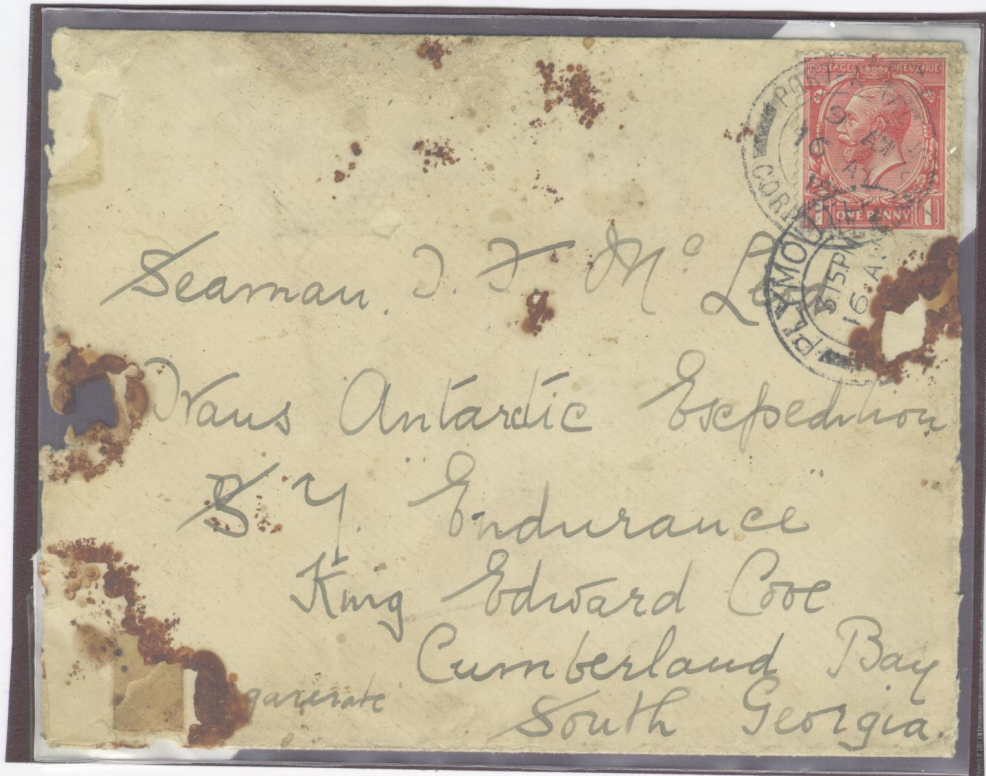 POSTAGE REVENUE
ONE PENNY
CORNWALL
PLYMOU
3 15 PM
16
Seaman T. F Mc
Trans Antarctic Expedition
S Y. Endurance
King Edward Cove
Cumberland Bay
South Georgia.